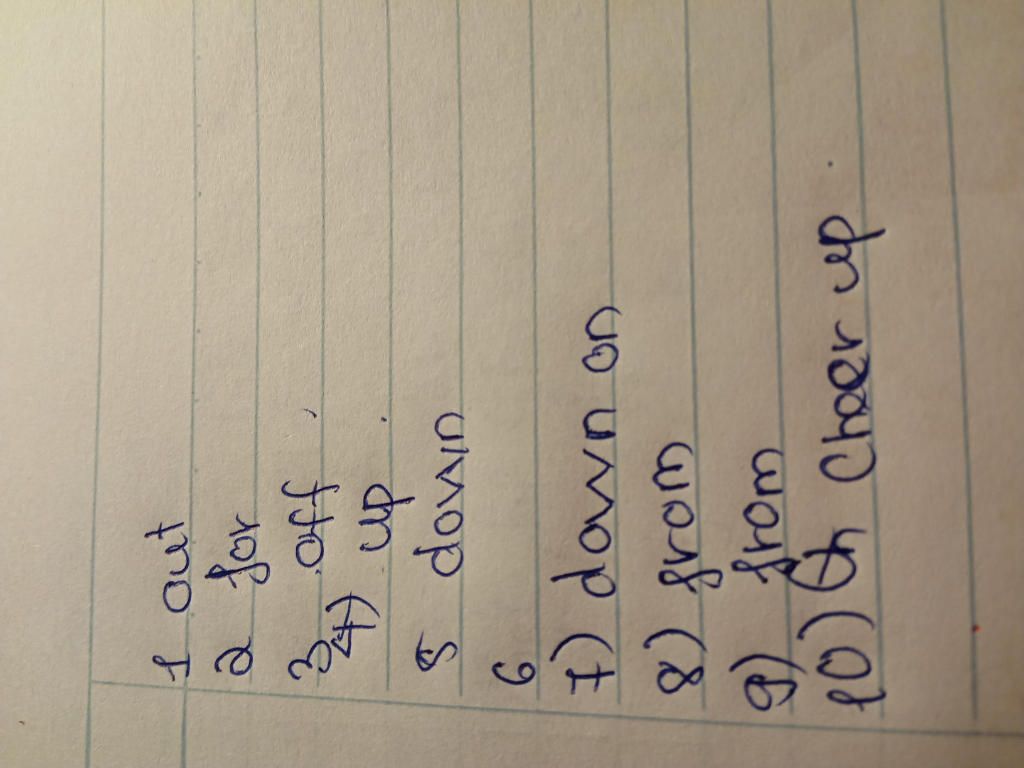 1 out
2 for
3 off
4) up
5 down
6
7) down on
8) from
9) from
10) Cheer up